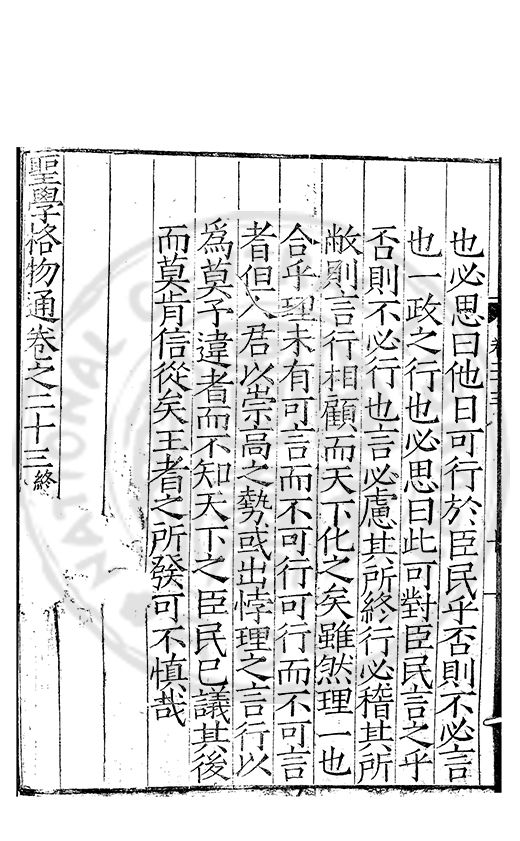 也必思曰他日可行於臣民乎否則不必言
也一政之行也必思曰此可對臣民言之乎
否則不必行也言必慮其所終行必稽其所
敝則言行相顧而天下化之矣雖然理一也
合乎理未有可言而不可行可行而不可言
者但人君以崇高之勢或出悖理之言行以
爲莫予違者而不知天下之臣民已議其後
而莫肯信從矣王者之所發可不慎哉
聖學格物通卷之二十三終